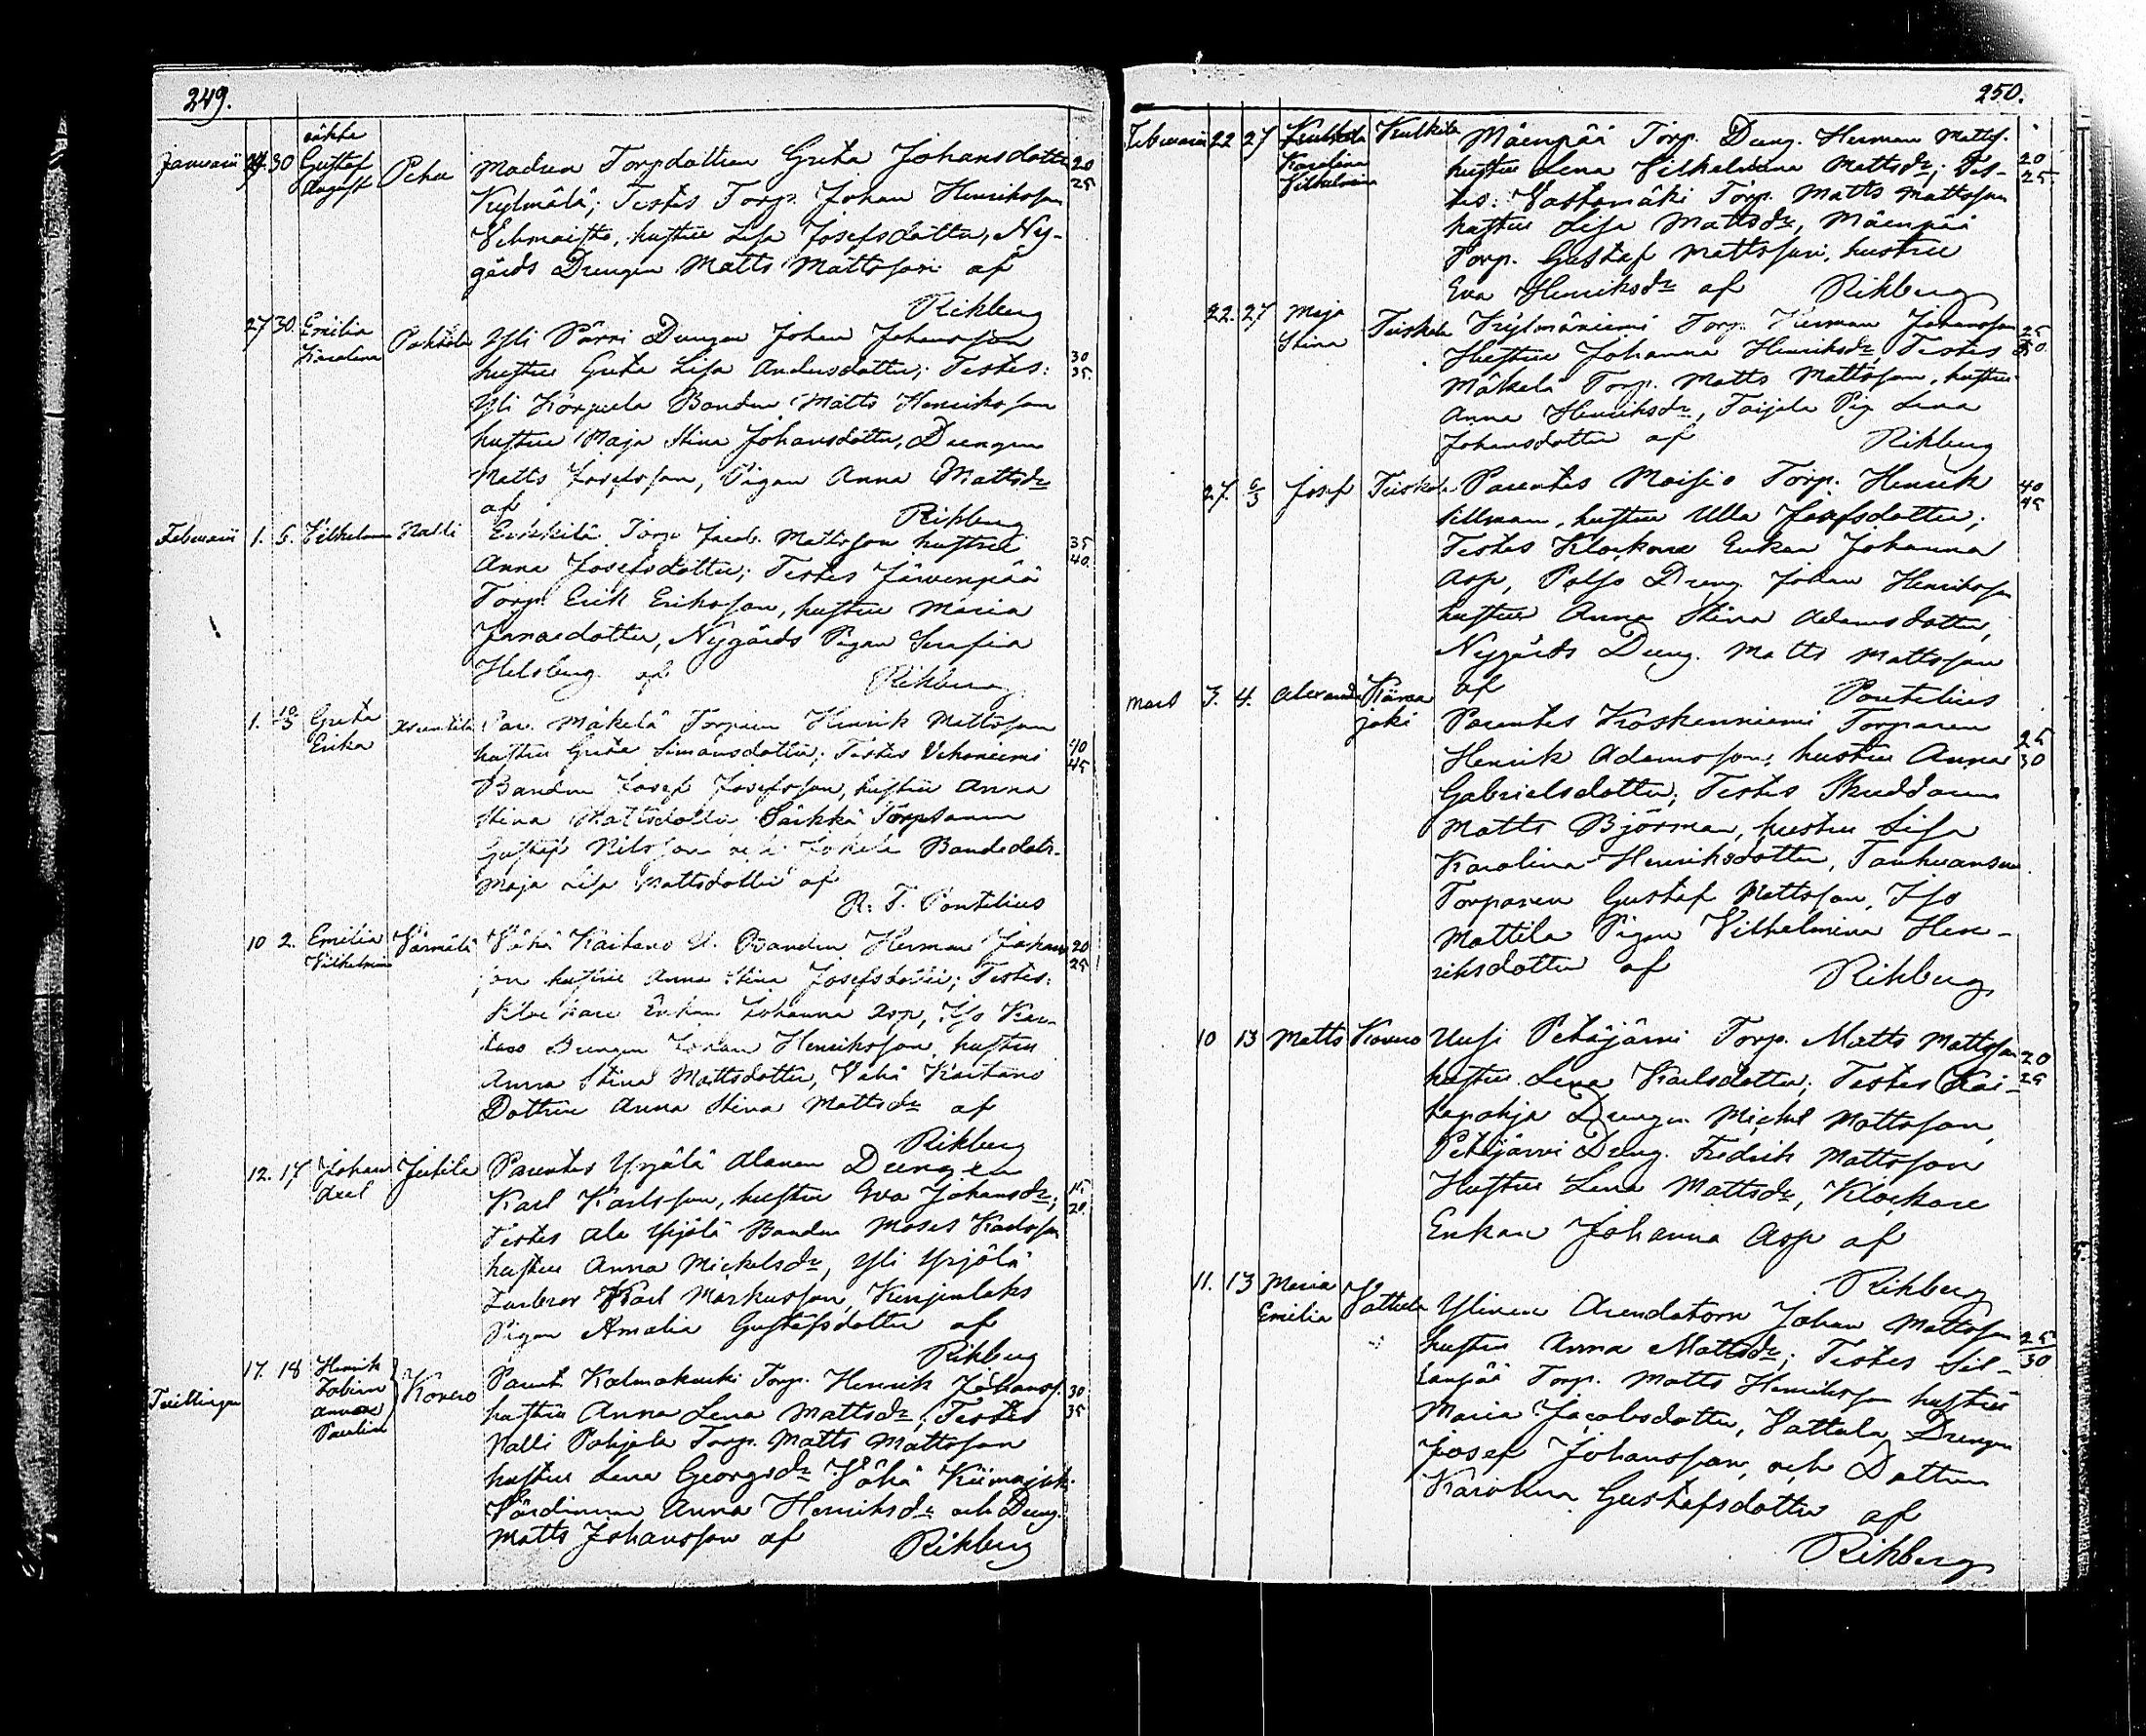 249.
oäkta
Januarii 27 30 Gustaf August Pehu Modren Torpdottren Greta Johansdotter 20 25
Kylmälä; Testes Torp. Johan Henriksson
hustru Lisa Josefsdotter, Ny-
gårds Drengen Matts Mattsson af
Rikberg
27 30. Emilia Karolina Yli Pärri Drengen Johan Johansson
hustru Greta Lisa Andersdotter; Testes: 30 35.
Yli Bonden Matts Henriksson
hustru Maja Stina Johansdotter, Drengen
Matts Josefsson, Pigan Anna Mattsdr
af Rikberg
Februarii 1. 5. Vilhelm Nalli Torp. Jacob Mattsson hustru 35
Anna Josefsdotter; Testes Järvenpää 40.
Torp. Erik Eriksson, hustru Maria
dotter, Nygårds Pigan Serafia
Helsberg af Rikberg
1. 10/3 Greta Erika Par. Mäkelä Torparen Henrik Mattsson
hustru Greta Simonsdotter; Testes Vihoniemi 40
Bonden Josef Josefsson, hustru Anna 45
Stina Mattsdotter Särkkä Torparen
Gustaf Nilsson och Jokela Bondedotr.
Maja Lisa Mattsdotter af
R. T. Pontelius
10 2. Emilia Vilhelmina Värmälä Vähä Kaitano U. Bonden Herman Johans- 20
son hustru Anna Stina Josefsdotter; Testes: 25
Klockare Enkan Johanna Asp, Iso
Drengen Johan Henriksson, hustru
Anna Stina Mattsdotter, Vähä Kaitano
Dottren Anna Stina Mattsdr af
Rikberg
12. 17 Johan Axel Jutila Parentes Yrjälä Alanen Drengen
Karl Karlsson, hustru Eva Johansdr; 15
Testes Ala Yrjölä Bonden Moses Karlsson 20.
hustru Anna Mickelsdr, Yli Yrjölä
Karl Markusson,
Pigan Amalia Gustafsdotter af
Rikberg
17. 18 Henrik Tobias Anna Paulina Kovero Parent. Torp. Henrik Johanss. 30
Tvillingar hustru Anna Lena Mattsdr; Testes 35
Nalli Pohjola Torp. Matts Mattsson
hustru Lena Georgsdr Vähä
Värdinnan Anna Henriksdr och Dreng.
Matts Johansson af Rikberg
250.
Februarii 22 27 Karolina Vilhelmina Kulkila Mäenpää Torp. Dreng. Herman Matts.
hustru Lena Vilhelmina Mattsdr; Tes- 20
tes: Vastamäki Torp. Matts Mattsson 25.
hustru Lisa Mattsdr, Mäenpää
Torp. Gustaf Mattsson, hustru
Eva Henriksdr af Rikberg
22. 27 Maja Stina Tuiskula Kylmäniemi Torp. Herman Johansson 25
Hustru Johanna Henriksdr, Testes 30.
Mäkelä Torp. Matts Mattsson, hustru
Anna Henriksdr, Taipale Pig. Lena
Johansdotter af Rikberg
27. 6/3 Josef Tuiskula Parentes Moisio Torp. Henrik 40
Sillman, hustru Ulla Josefsdotter; 45
Testes Klockare Enkan Johanna
Asp, Dreng Johan Henriksson
hustru Anna Stina Adamsdotter,
Nygårds Dreng. Matts Mattsson
af Pontelius
Mars 3. 4. Alexander Kärra joki Parentes Koskenniemi Torparen 25
Henrik Adamsson, hustru Anna 30
Gabrielsdotter; Testes Skräddaren
Matts Björman, hustru Lisa
Karolina Henriksdotter,
Torparen Gustaf Mattsson, Iso
Mattila Pigan Vilhelmina Hen-
riksdotter af Rikberg
10 13 Matts Kovero Uusi Petäjärvi Torp. Matts Mattsson 20
hustru Lena Karlsdotter; Testes Kai- 25
Drengen Mickel Mattsson,
Petäjärvi Dreng. Fredrik Mattsson
Hustru Lena Mattsdr, Klockare
Enkan Johanna Asp af
Rikberg
11. 13 Maria Emilia Vattula Ylinen Arendatorn Johan Mattsson 25
hustru Anna Mattsdr; Testes Sil- 30
lanpää Torp. Matts Henriksson hustru
Maria Jacobsdotter, Vattula Drengen
Josef Johansson, och Dottren
Karolina Gustafsdotter af
Rikberg